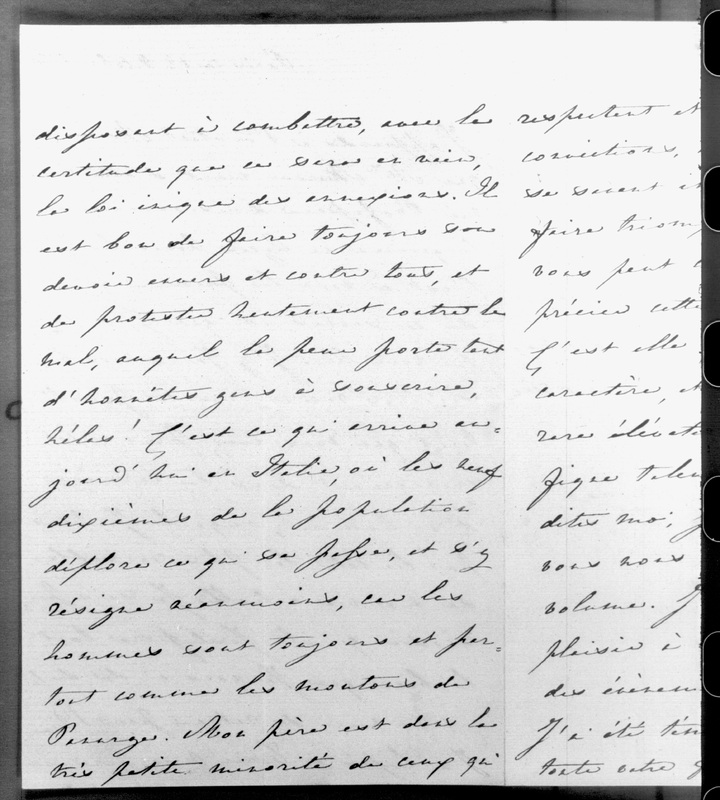 disposant à combattre, avec la
certitude que ce sera en vain,
la loi inique des annexions. Il
est bon de faire toujours son
devoir envers et contre tous, et
de protester hautement contre le
mal, auquel la peur porte tant
d'honnêtes gens à souscrire,
hélas! C'est ce qui arrive au=
jourd'hui en Italie, où les neuf
dixièmes de la population
déplore ce qui se passe, et s'y
résigne néanmoins, car les
hommes sont toujours et par=
tout comme les moutons de
Panurge. Mon père est dans la
très petite minorité de ceux qui
respectent et
convictions,
se seront
faire triom
vous peut
précier cette
C'est elle
caractère, et
rare élévati
fique talen
dites moi,
vous nous
volume. J
plaisir à
des évènem
J'ai été tém
toute votre